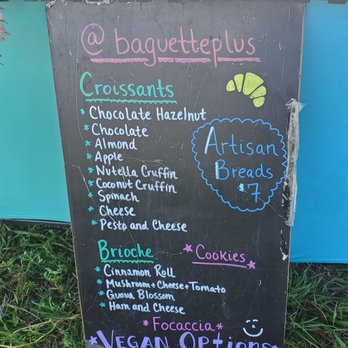 @ baguetteplus
Croissants
* Chocolate Hazelnut
* Chocolate
* Almond
* Apple
* Nutella Cruffin
* Coconut Cruffin
* Spinach
* Cheese
* Pesto and Cheese
Artisan
Breads
$7
Brioche
* Cinnamon Roll
* Mushroom+Cheese+Tomato
* Guava Blossom
* Ham and Cheese
* Cookies
* Focaccia *
* VEGAN Options